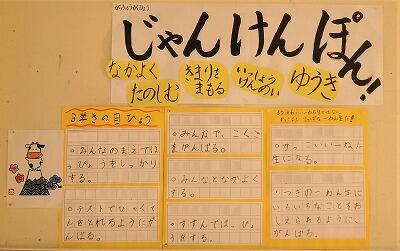 がっきゅうもくひょう
じゃんけんぽん!
なかよく
たのしむ
きまりを
まもる
いっしょう
けんめい
ゆうき
3学きの目ひょう
○みんなのまえではっ
ぴょうをしっかり
する。
○テストでひゃくて
んをとれるようにが
んばる。
○みんなで、こくご
をがんばる。
○みんなとなかよく
する。
○すすんではっぴょ
うをする。
○かっこいい一ねん
生になる。
○つぎの一ねん生に
いろいろなことをお
しえられるように、
がんばる。